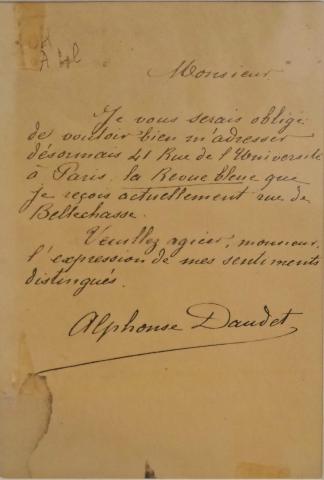 Monsieur
Je vous serais obligé
de vouloir bien m'adresser
désormais 41 Rue de l'Université
à Paris. la Revue bleue que
je reçois actuellement rue de
Bellechasse.
Veuillez agréer, monsieur,
l'expression de mes sentiments
distingués.
Alphonse Daudet